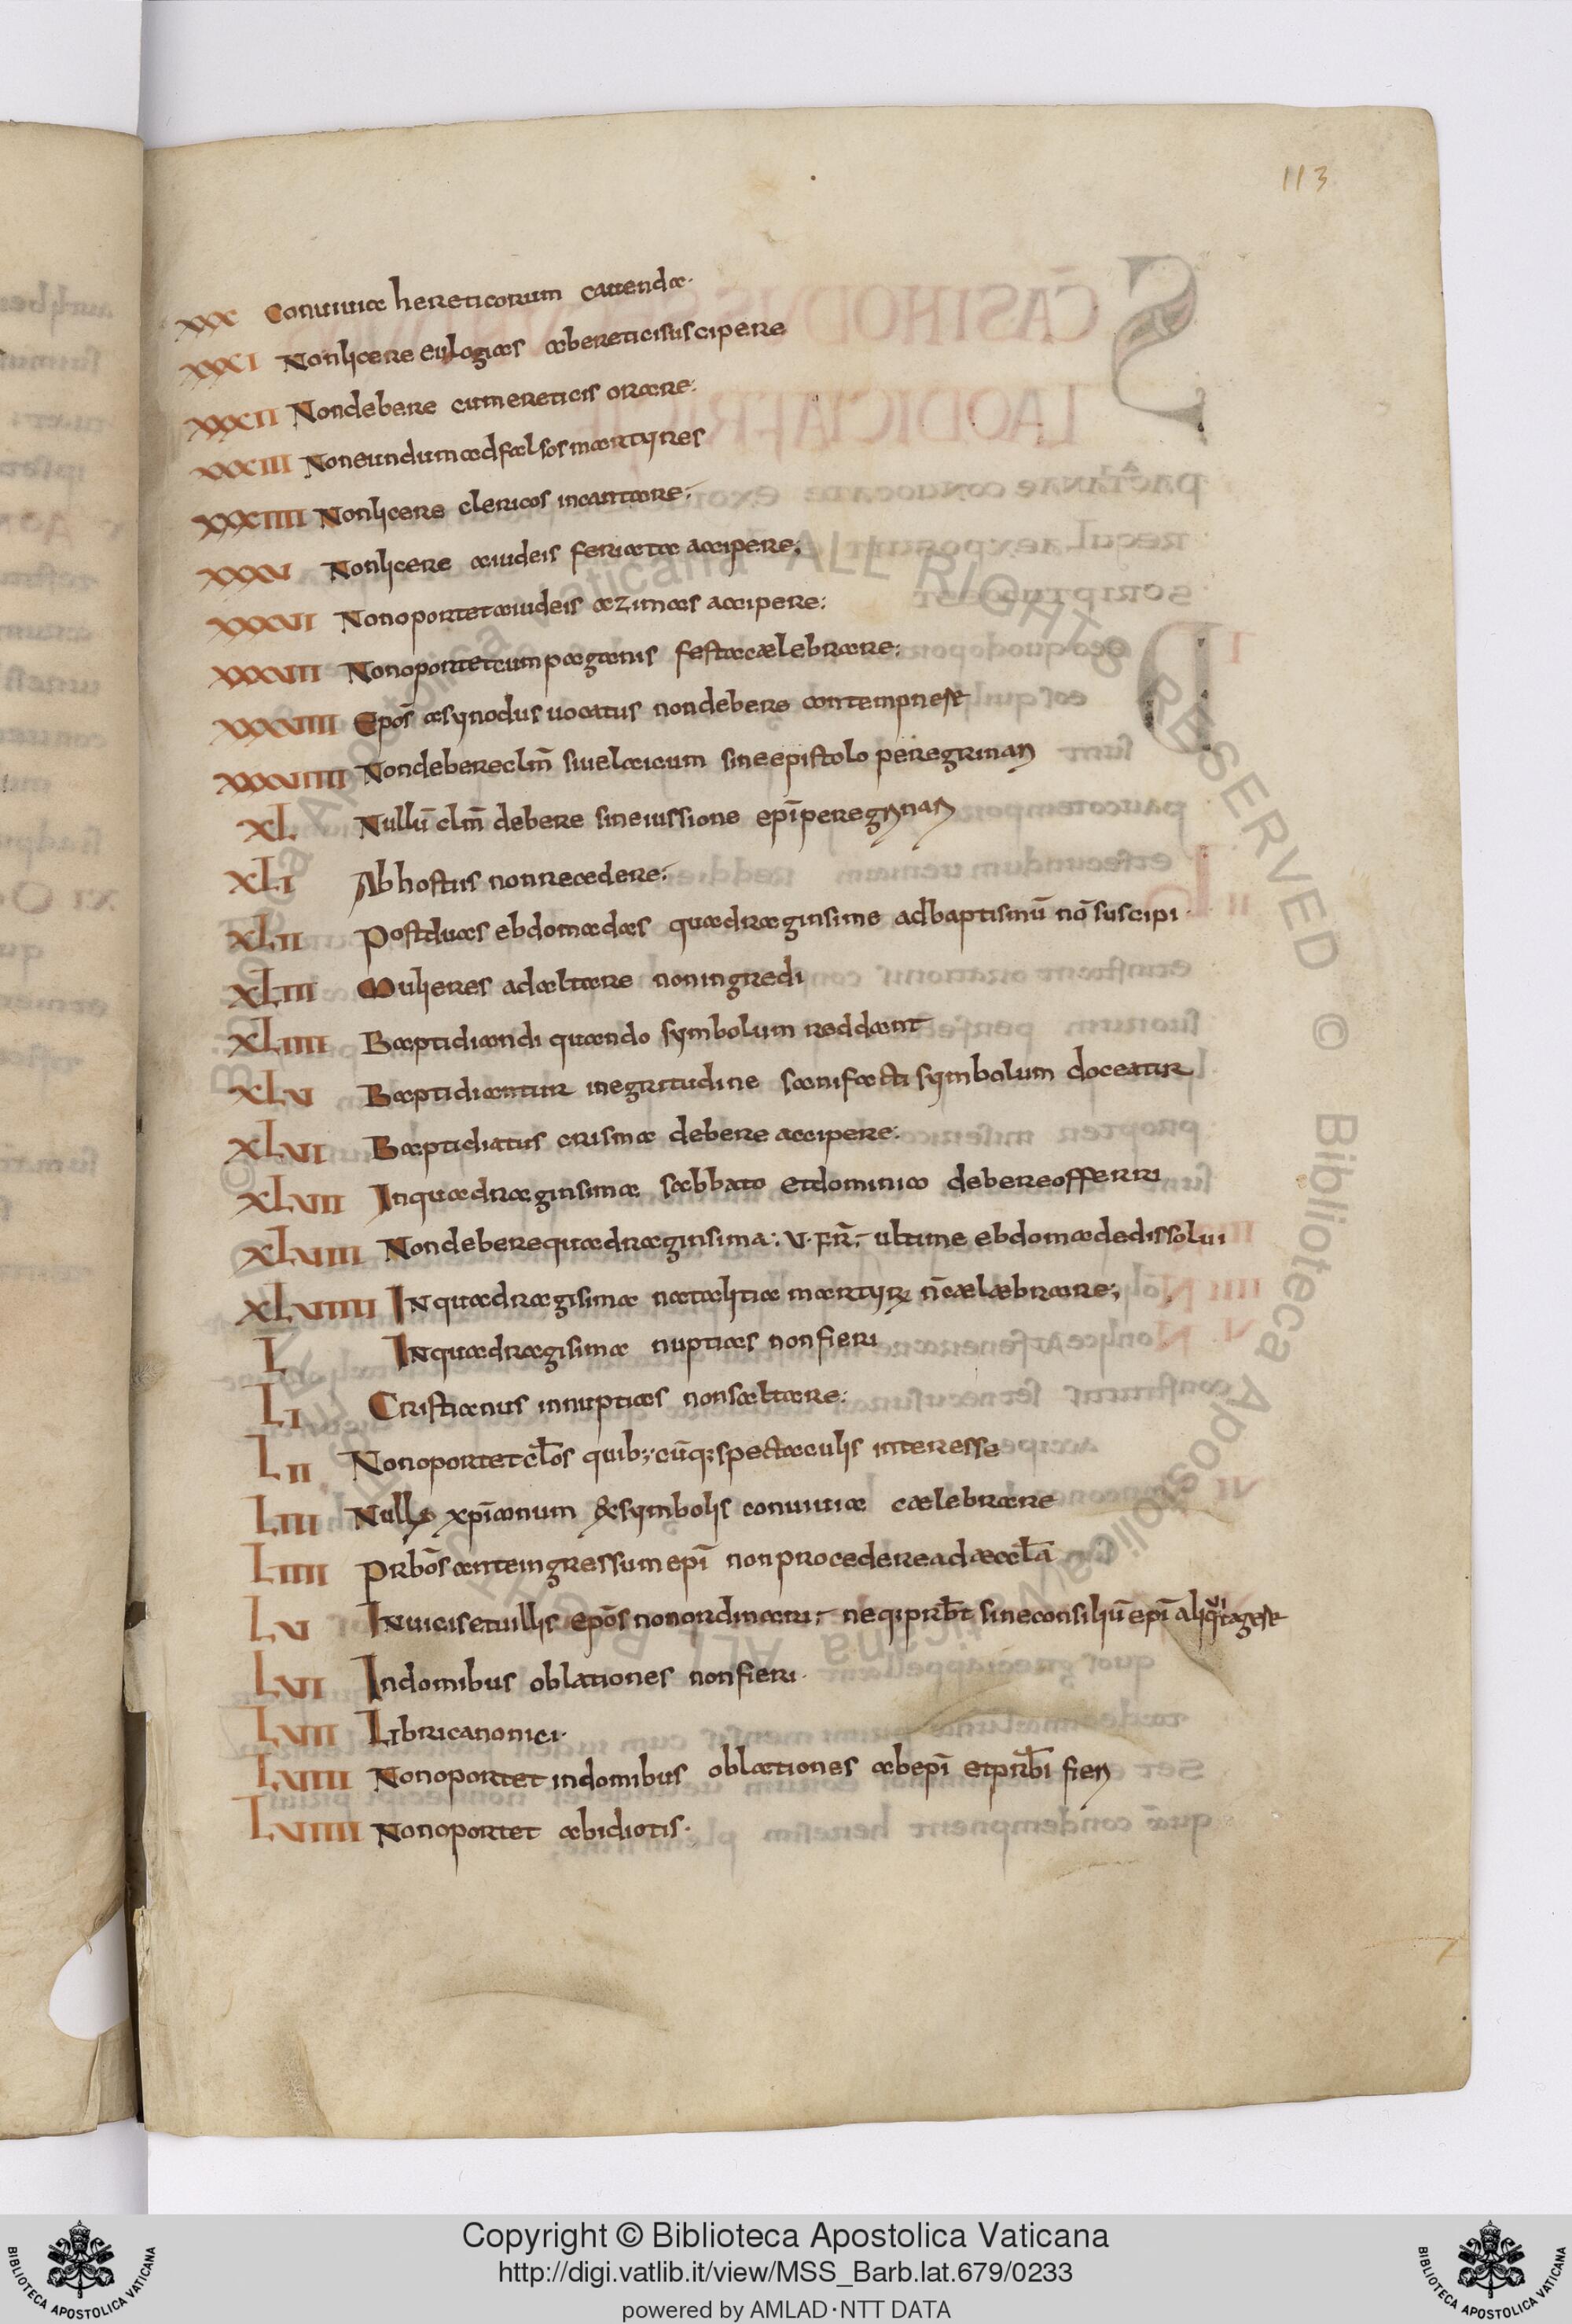 113
XXX Conuiuia hereticorum cauenda·
XXXI Nonlicere eulogias abereticisuscipere
XXXII Nondebere cumereticis orare:
XXXIII Noneundumadfalsosmartyres
XXXIIII Nonlicere clericos incantare;
XXXV Nonlicere aiudeis feriata accipere;
XXXVI Nonoportetaiudeis azimas accipere:
XXXVII Nonoportetcumpaganis festacaelebrare:
XXXVIII Epos̄ asynodus uocatus nondebere contempnere
XXXVIIII Nondebereclm̄ siuelaicum sineepistolo peregrinari
XL Nullū clm̄ debere sineiussione epī peregrinari
XLI Abhostiis nonrecedere:
XLII Postduas ebdomadas quadraginsime adbaptismū nō suscipi·
XLIII Mulieres adaltare noningredi
XLIIII Baptidiandi quando symbolum reddant
XLV Baptidiantur inegritudine sanifacti symbolum doceatur
XLVI Baptidiatus crisma debere accipere:
XLVII Inquadraginsima sabbato etdominico debereofferri
XLVIII Nondeberequadraginsima: V· FR̄; ultime ebdomadedissolui
XLVIIII Inquadragisima natalitia martyrum n̄caelaebrare;
L Inquadragisima nuptias nonfieri
LI Cristianus innuptias nonsaltare:
LII Nonoportetclōs quib;·cūq; spectaculis interesse
LIII xpīanum exsymbolis conuiuia caelebrare
LIIII Prbōs anteingressumepī nonprocedereadaeccl̄a
LV Inuicisetuillis epōs nonordinari; neq;prb̄t sineconsiliū epī agere
LVI Indomibus oblationes nonfieri·
LVII Libricanonici·
LVIII Nonoportet indomibus oblationes abepī etprb̄i fieri
LVIIII Nonoportet abidiotis·
© Biblioteca Apostolica Vaticana ALL RIGHTS RESERVED © Biblioteca Apostolica Vaticana ALL RIGHTS RESERVED
BIBLIOTECA APOSTOLICA VATICANA
Copyright © Biblioteca Apostolica Vaticana
http://digi.vatlib.it/view/MSS_Barb.lat.679/0233
powered by AMLAD·NTT DATA
BIBLIOTECA APOSTOLICA VATICANA